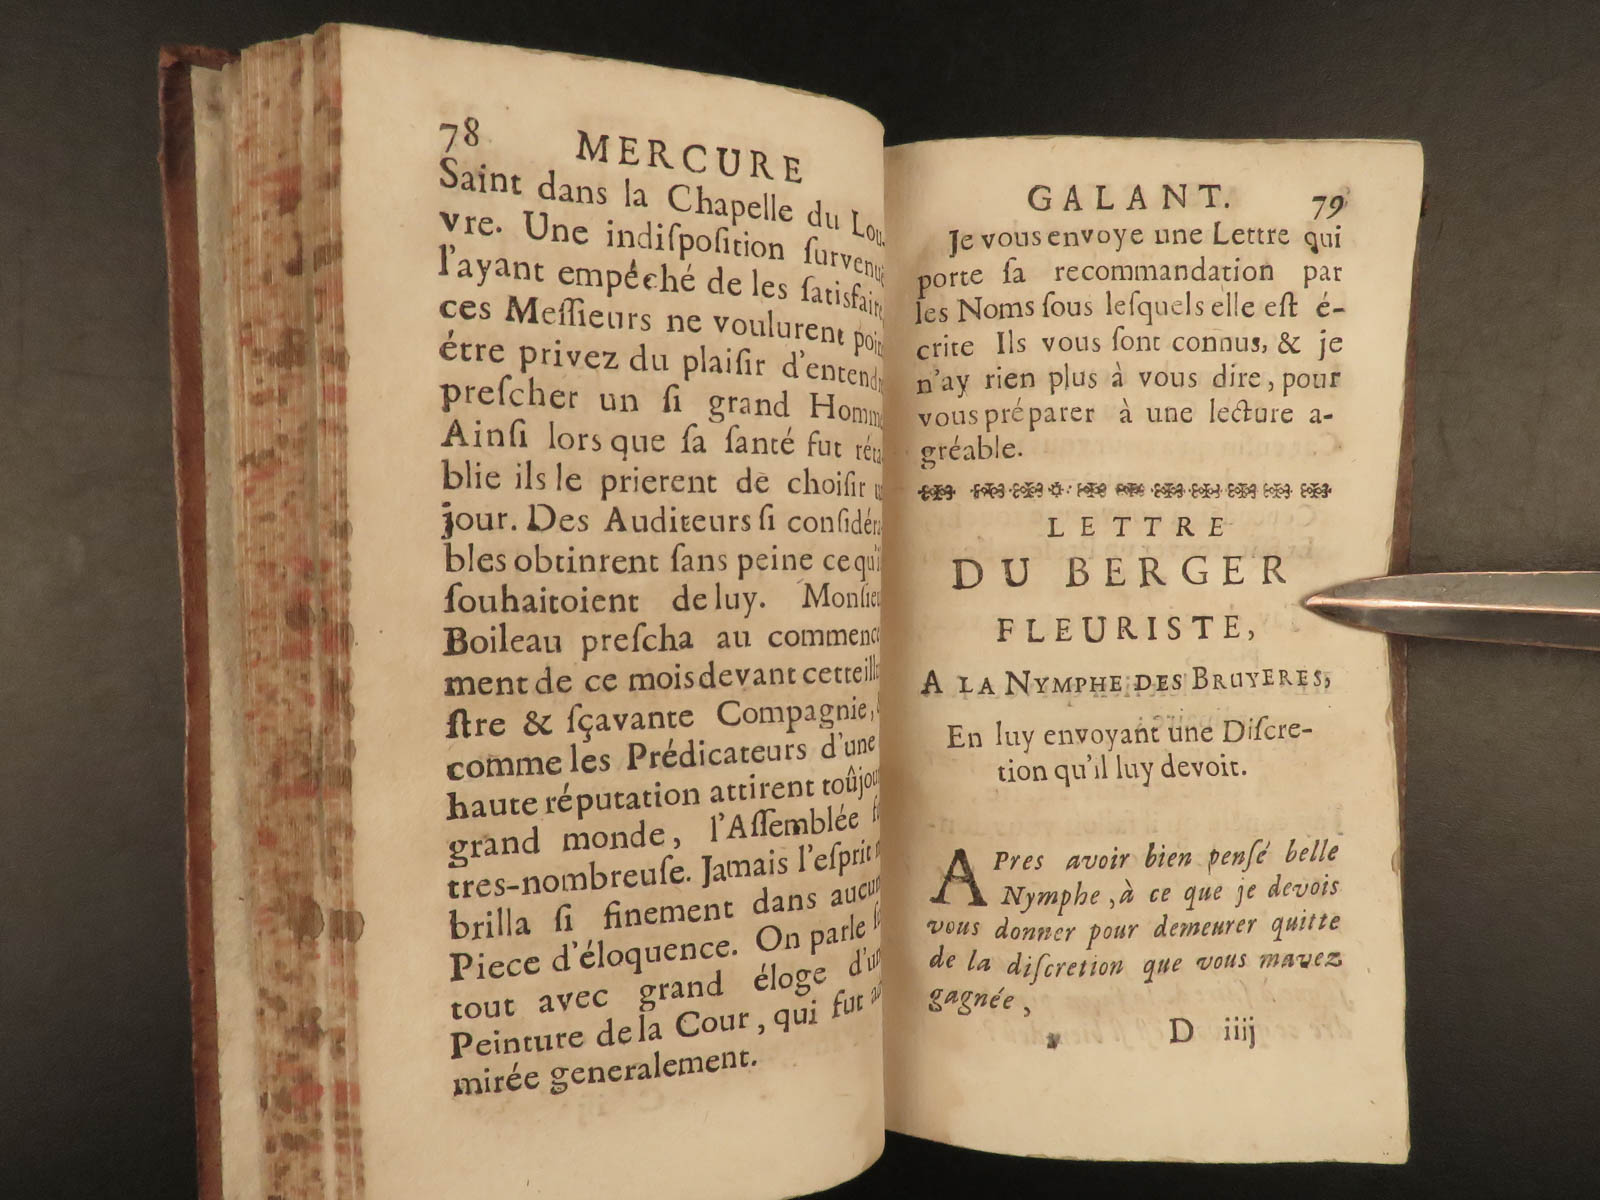 78 MERCURE
Saint dans la Chapelle du Lou-
vre. Une indiſpoſition ſurvenuë
l'ayant empéché de les ſatisfaire,
ces Meſſieurs ne voulurent point
étre privez du plaiſir d'entendre
preſcher un ſi grand Homme
Ainſi lors que ſa ſanté fut réta-
blie ils le prierent de choiſir un
jour. Des Auditeurs ſi conſidéra-
bles obtinrent ſans peine ce qu'il
ſouhaitoient de luy. Monſieur
Boileau preſcha au commence-
ment de ce mois devant cette illu-
ſtre & ſçavante Compagnie,
comme les Prédicateurs d'une
haute réputation attirent toûjours
grand monde, l'Aſſemblée fut
tres-nombreuſe. Jamais l'eſprit ne
brilla ſi finement dans aucune
Piece d'éloquence. On parle ſur
tout avec grand éloge d'une
Peinture de la Cour, qui fut ad-
mirée generalement.
GALANT. 79
Je vous envoye une Lettre qui
porte ſa recommandation par
les Noms ſous leſquels elle eſt é-
crite Ils vous ſont connus, & je
n'ay rien plus à vous dire, pour
vous préparer à une lecture a-
gréable.
LETTRE
DU BERGER
FLEURISTE,
A LA NYMPHE DES BRUYERES,
En luy envoyant une Diſcre-
tion qu'il luy devoit.
APres avoir bien penſé belle
Nymphe, à ce que je devois
vous donner pour demeurer quitte
de la diſcretion que vous mavez
gagnée,
D iiij